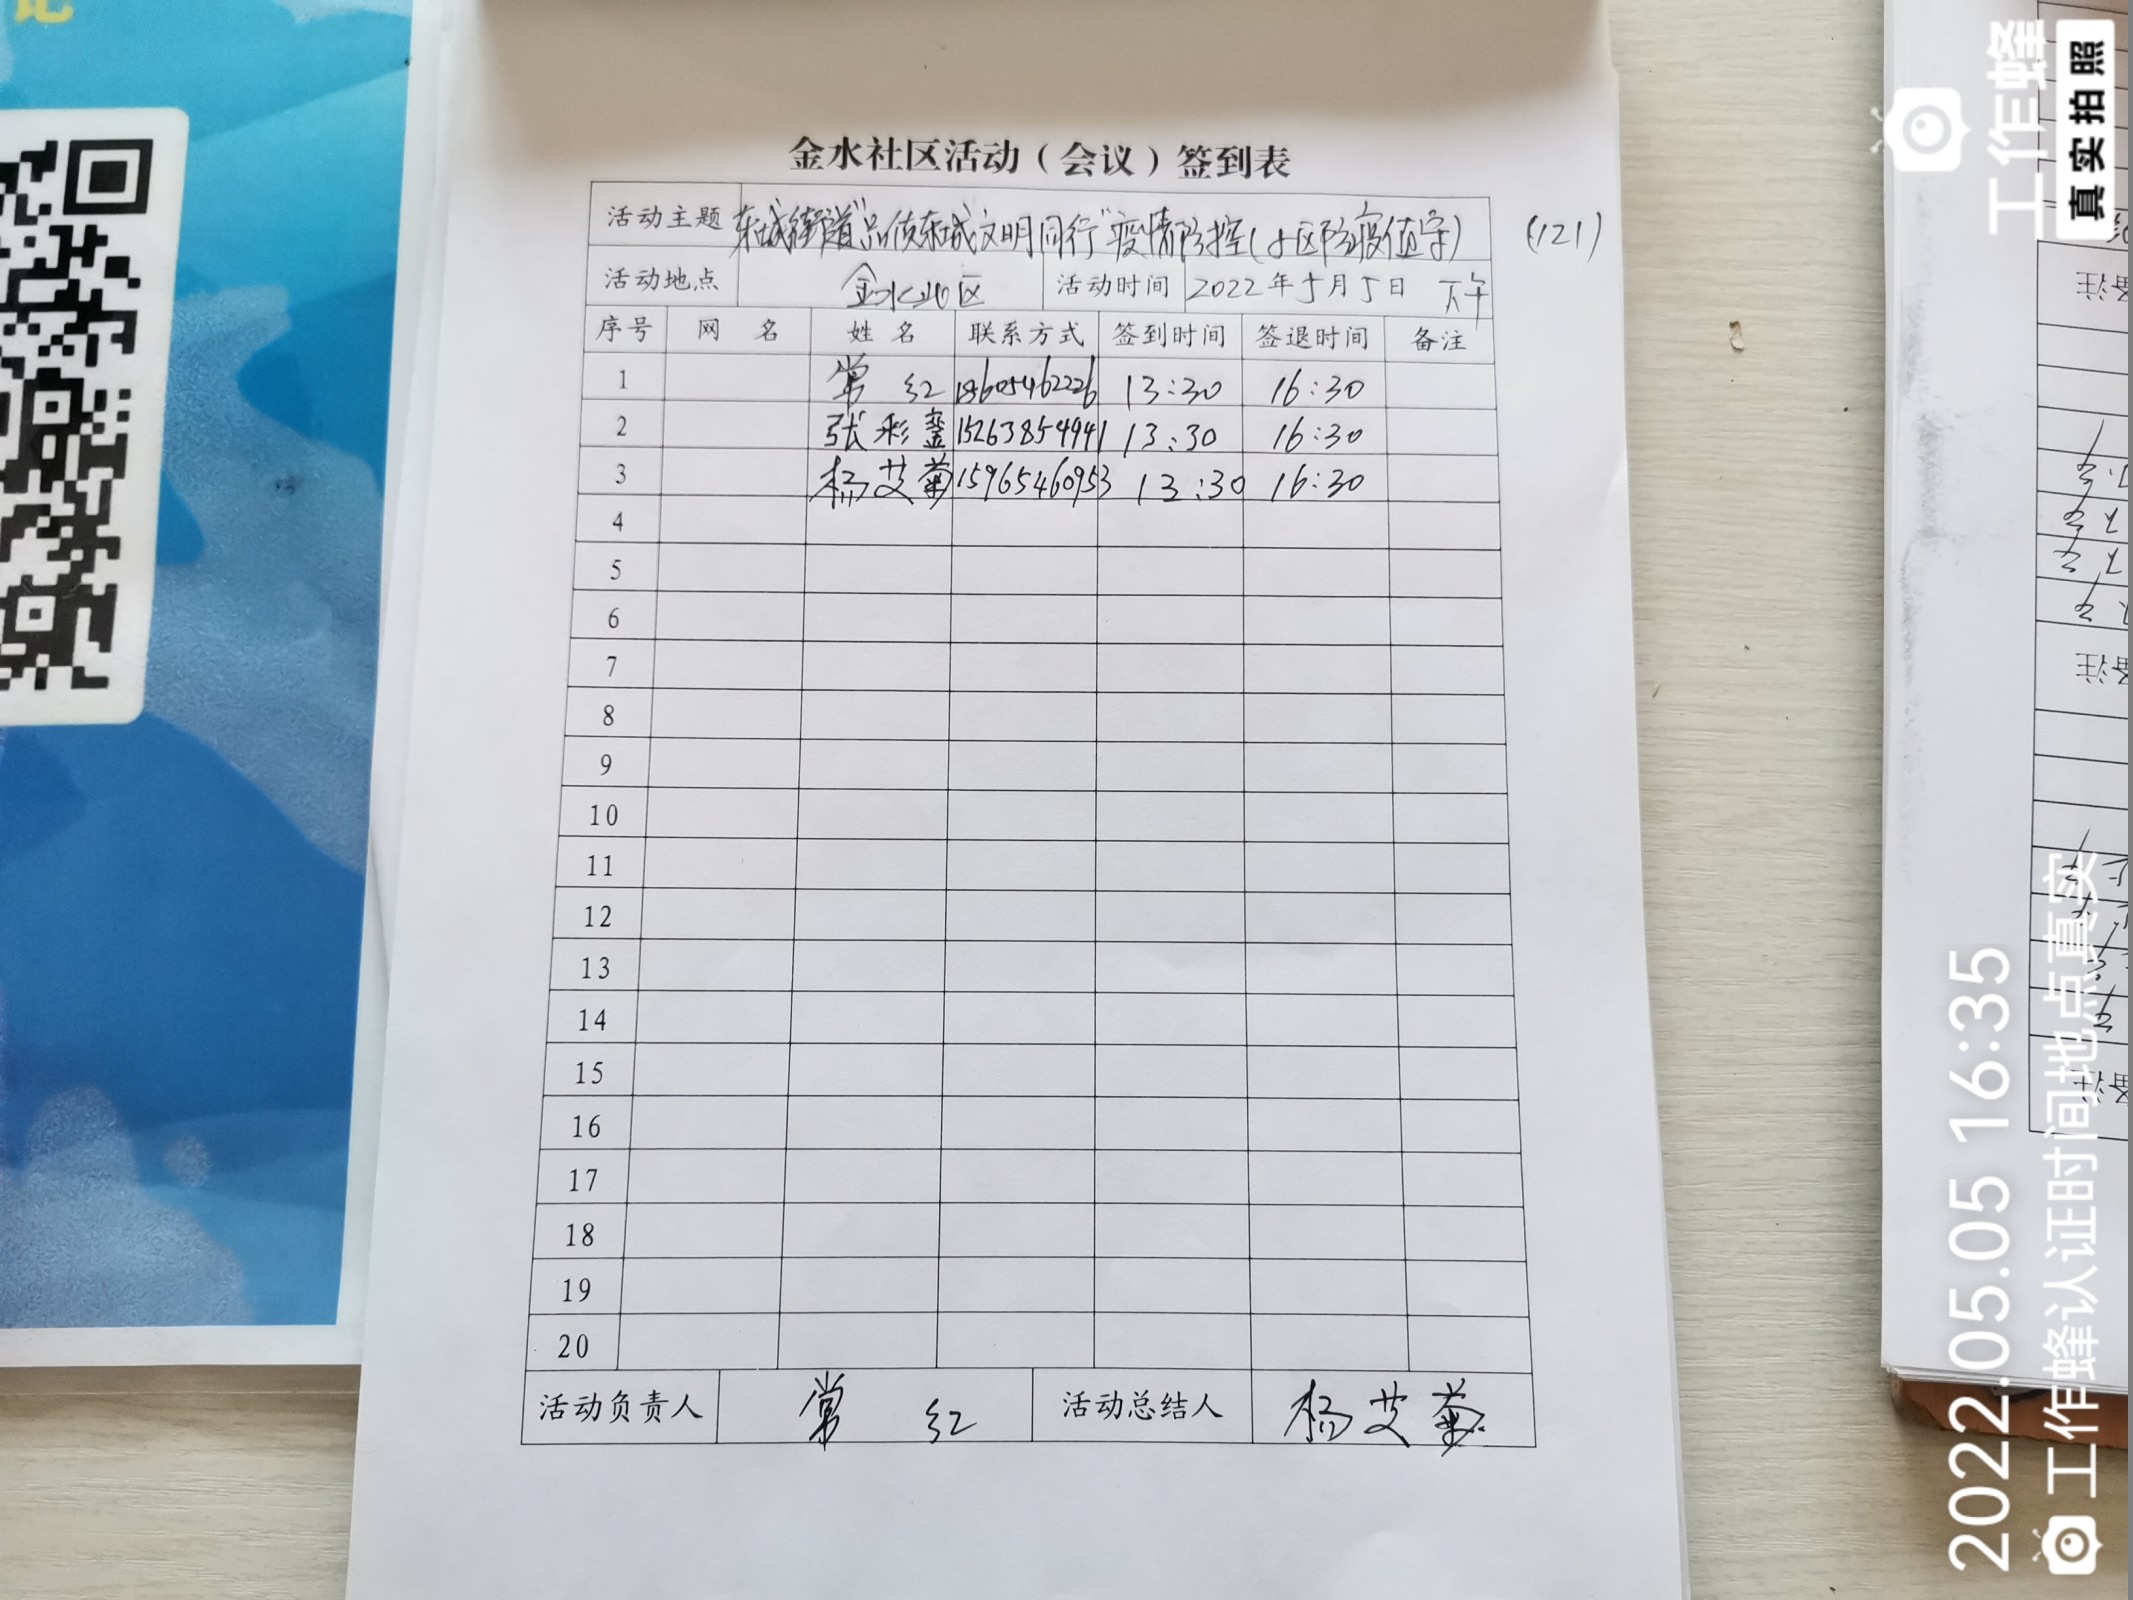 金水社区活动（会议）签到表
活动主题 东城街道"品质东城文明同行"疫情防控(小区防疫值守) (121)
活动地点 金水小区 活动时间 2022年5月5日 下午
序号 网 名 姓 名 联系方式 签到时间 签退时间 备注
1 常 红 18605462226 13:30 16:30
2 张彩銮 15263854941 13:30 16:30
3 杨艾菊 15965460953 13:30 16:30
4
5
6
7
8
9
10
11
12
13
14
15
16
17
18
19
20
活动负责人 常 红 活动总结人 杨艾菊
工作蜂
真实拍照
2022.05.05 16:35
工作蜂认证时间地点真实
备注
备注
备注